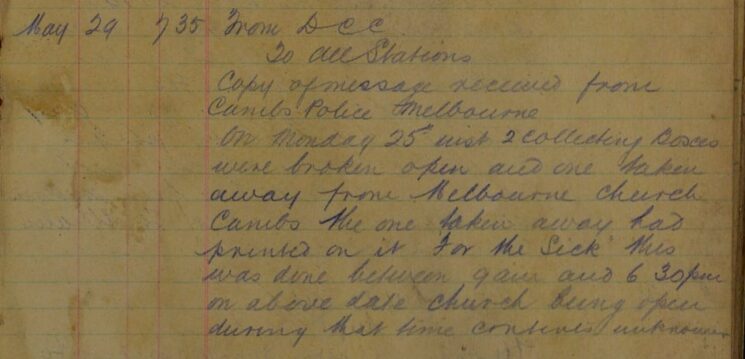 May 29 7 35 From D C C
To all Stations
Copy of message received from
Cambs Police Melbourne
On Monday 25th inst 2 Collecting Boxes
were broken open and one taken
away from Melbourne Church
Cambs the one taken away had
printed on it "For the Sick" this
was done between 9 am and 6 30 pm
on above date church being open
during that time contents unknown